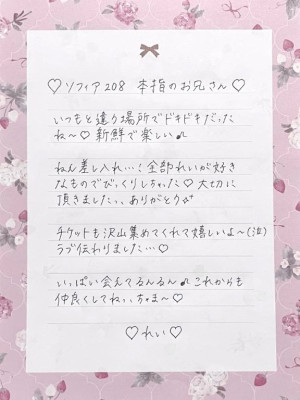 ♡ ソフィア208 本指のお兄さん ♡
いつもと違う場所でドキドキだった
ね〜♡ 新鮮で楽しい♪
ねん差し入れ…! 全部れいが好き
なものでびっくりしちゃった♡ 大切に
頂きました、、ありがとう
チケットも沢山集めてくれて嬉しいよ〜(泣)
ラブ伝わりました…♡
いっぱい会えてるんるん♪ これからも
仲良くしてね、、ちゅま〜♡
♡ れい ♡